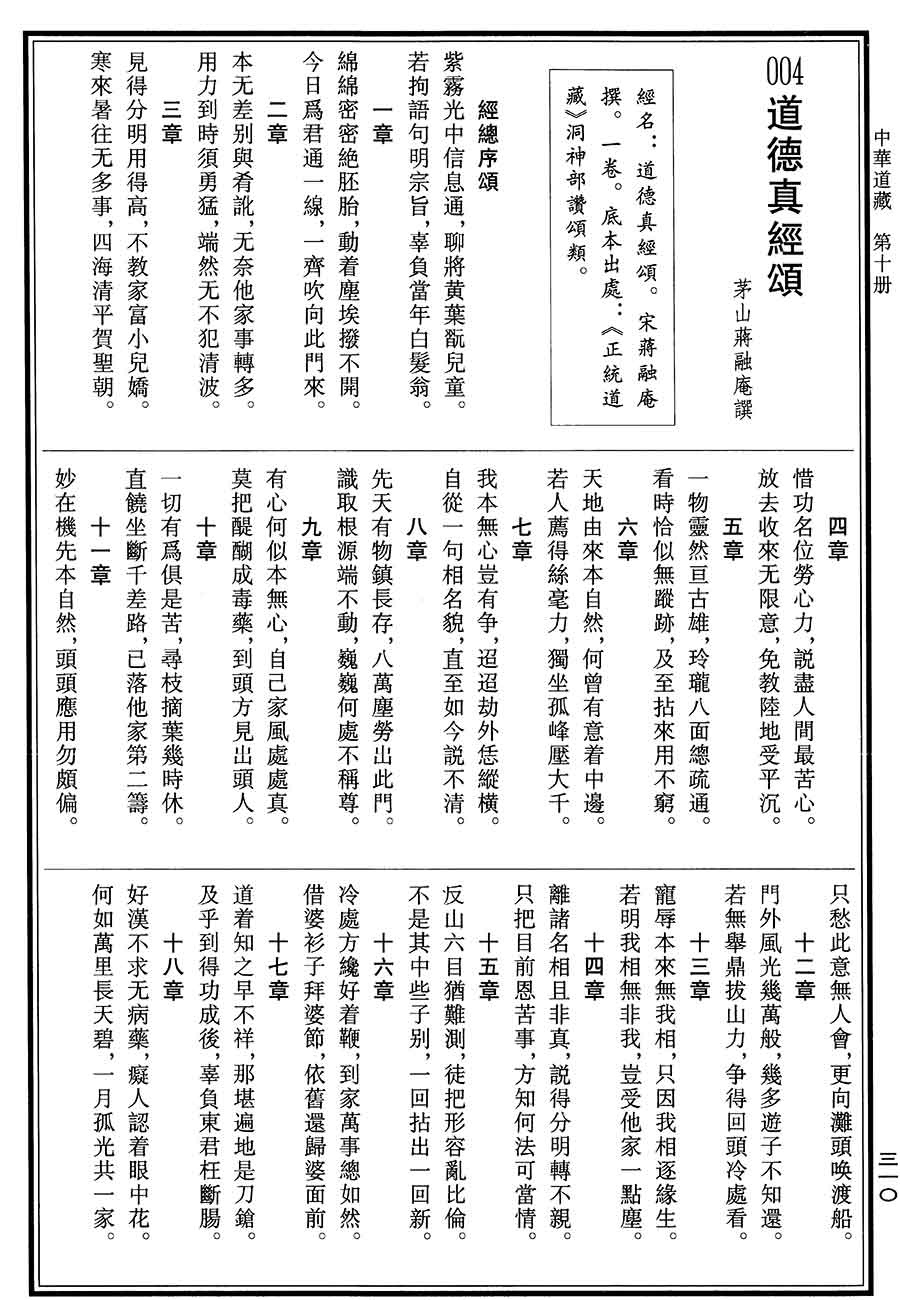 中華道藏　第十册
三一〇
004 道德真經頌
茅山蔣融庵譔
經名：道德真經頌。宋蔣融庵
撰。一卷。底本出處：《正統道
藏》洞神部讚頌類。
經總序頌
紫霧光中信息通，聊將黄葉翫兒童。
若拘語句明宗旨，辜負當年白髮翁。
一章
綿綿密密絶胚胎，動着塵埃撥不開。
今日爲君通一線，一齊吹向此門來。
二章
本无差别與肴訛，无奈他家事轉多。
用力到時須勇猛，端然无不犯清波。
三章
見得分明用得高，不教家富小兒嬌。
寒來暑往无多事，四海清平賀聖朝。
四章
惜功名位勞心力，説盡人間最苦心。
放去收來无限意，免教陸地受平沉。
五章
一物靈然亘古雄，玲瓏八面總疏通。
看時恰似無蹤跡，及至拈來用不窮。
六章
天地由來本自然，何曾有意着中邊。
若人薦得絲毫力，獨坐孤峰壓大千。
七章
我本無心豈有争，迢迢劫外恁縱横。
自從一句相名貌，直至如今説不清。
八章
先天有物鎮長存，八萬塵勞出此門。
識取根源端不動，巍巍何處不稱尊。
九章
有心何似本無心，自己家風處處真。
莫把醍醐成毒藥，到頭方見出頭人。
十章
一切有爲俱是苦，尋枝摘葉幾時休。
直饒坐斷千差路，已落他家第二籌。
十一章
妙在機先本自然，頭頭應用勿頗偏。
只愁此意無人會，更向灘頭唤渡船。
十二章
門外風光幾萬般，幾多遊子不知還。
若無舉鼎拔山力，争得回頭冷處看。
十三章
寵辱本來無我相，只因我相逐緣生。
若明我相無非我，豈受他家一點塵。
十四章
離諸名相且非真，説得分明轉不親。
只把目前恩苦事，方知何法可當情。
十五章
反山六目猶難測，徒把形容亂比倫。
不是其中些子别，一回拈出一回新。
十六章
冷處方纔好着鞭，到家萬事總如然。
借婆衫子拜婆節，依舊還歸婆面前。
十七章
道着知之早不祥，那堪遍地是刀鎗。
及乎到得功成後，辜負東君枉斷腸。
十八章
好漢不求无病藥，癡人認着眼中花。
何如萬里長天碧，一月孤光共一家。